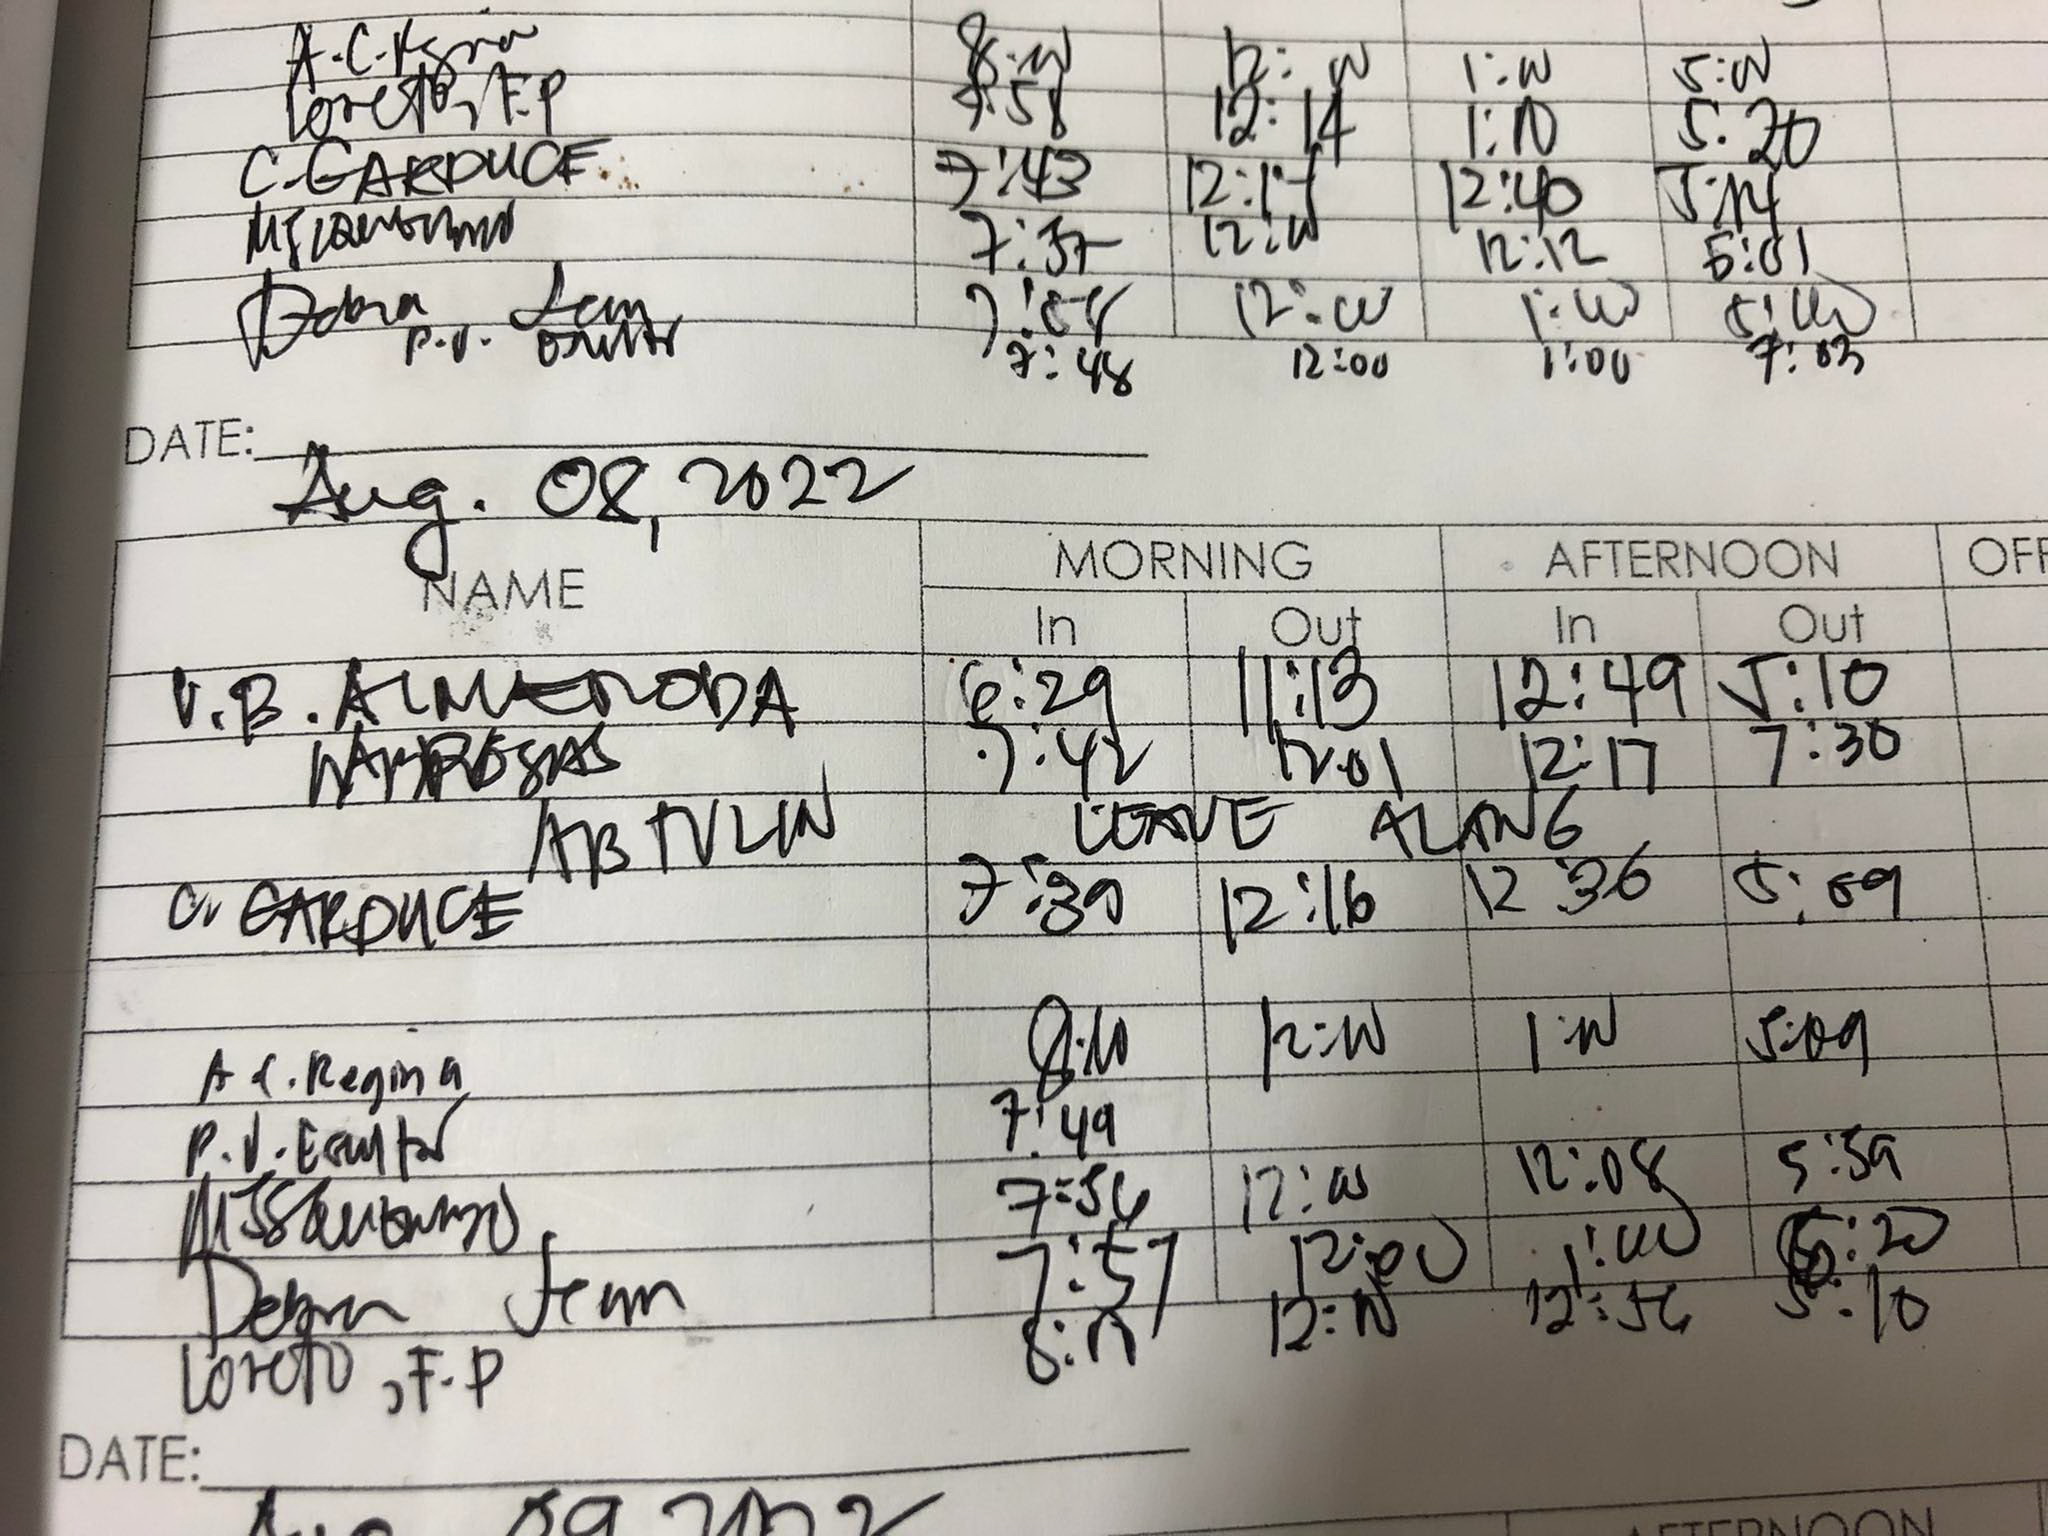 A.C. Regina 8:00 12:00 1:00 5:00
Loreto, F.P 7:58 12:14 1:10 5:20
C. GARDUCE 7:43 12:15 12:40 5:14
7:57 12:00 12:12 5:01
Debra Jean 12:00 1:00 5:00
P.V. 7:48 12:00 1:00 7:03
DATE:
Aug. 08, 2022
NAME MORNING AFTERNOON
In Out In Out
V.B. ALMERODA 6:29 11:13 12:49 5:10
7:42 12:01 12:17 7:30
LEAVE
C. GARDUCE 7:39 12:16 12:36 5:09
A.C. Regina 8:10 12:00 1:00 5:09
P.V. 7:49
7:56 12:00 12:08 5:59
Debra Jean 7:57 12:00 1:00 :20
Loreto, F.P 12:56 5:10
DATE:
Aug 09, 2022
AFTERNOON